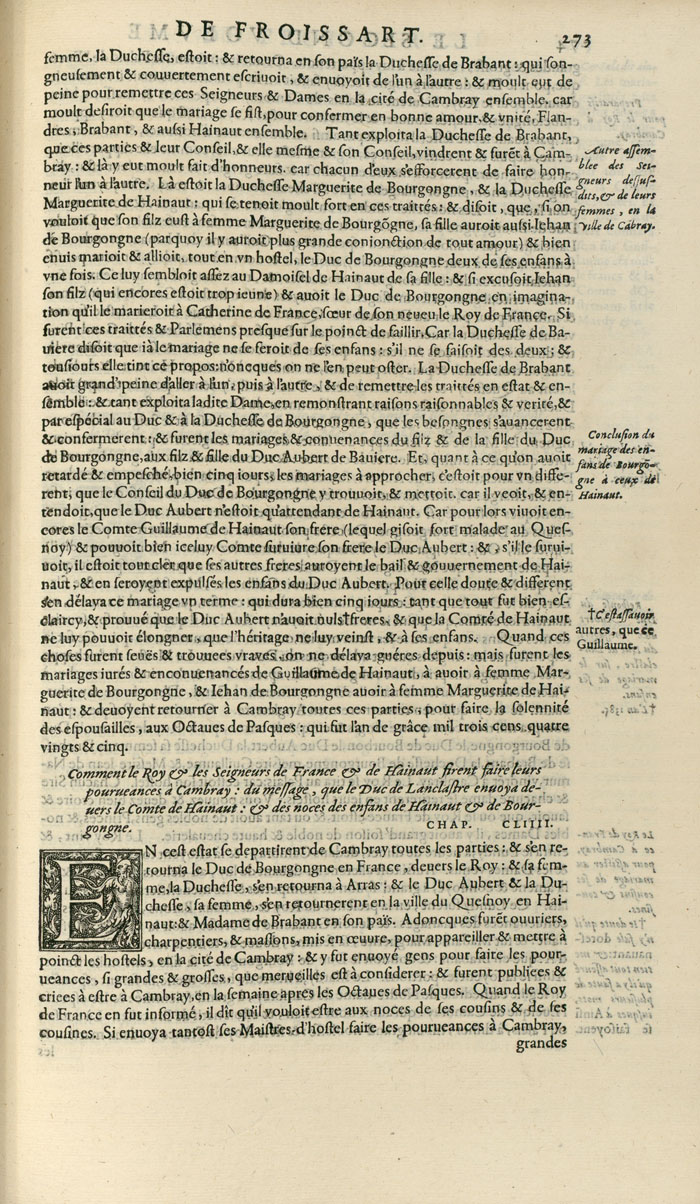 DE FROISSART.
273
femme, la Duchesse, estoit: & retourna en son païs la Duchesse de Brabant: qui son-
gneusement & couuertement escriuoit, & enuoyoit de l'un à l'autre: & moult eut de
peine pour remettre ces Seigneurs & Dames en la cité de Cambray ensemble. car
moult desiroit que le mariage se fist, pour confermer en bonne amour, & vnité, Flan-
dres, Brabant, & aussi Hainaut ensemble. Tant exploita la Duchesse de Brabant,
que ces parties & leur Conseil, & elle mesme & son Conseil, vindrent & furēt à Cam-
bray: & là y eut moult fait d'honneurs. car chacun d'eux s'efforcerent de faire hon-
neur l'un à l'autre. Là estoit la Duchesse Marguerite de Bourgongne, & la Duchesse
Marguerite de Hainaut: qui se tenoit moult fort en ces traittés: & disoit, que, si on
vouloit que son filz eust à femme Marguerite de Bourgōgne, sa fille auroit aussi Iehan
de Bourgongne (parquoy il y auroit plus grande conionction de tout amour) & bien
enuis marioit & allioit, tout en vn hostel, le Duc de Bourgongne deux de ses enfans à
vne fois. Ce luy sembloit assez au Damoisel de Hainaut de sa fille: & si excusoit Iehan
son filz (qui encores estoit trop ieune) & auoit le Duc de Bourgongne en imagina-
tion qu'il le marieroit à Catherine de France, sœur de son neueu le Roy de France. Si
furent ces traittés & Parlemens presque sur le poinct de faillir, Car la Duchesse de Ba-
uiere disoit que ià le mariage ne se feroit de ses enfans: s'il ne se faisoit des deux: &
tousiours elle tint ce propos: n'oncques on ne l'en peut oster. La Duchesse de Brabant
auoit grand' peine d'aller à l'un, puis à l'autre, & de remettre les traittés en estat & en-
semble: & tant exploita ladite Dame, en remonstrant raisons raisonnables & verité, &
par espécial au Duc & à la Duchesse de Bourgongne, que les besongnes s'auancerent
& confermerent: & furent les mariages & conuenances du filz & de la fille du Duc
de Bourgongne, aux filz & fille du Duc Aubert de Bauiere. Et, quant à ce qu'on auoit
retardé & empesché, bien cinq iours, les mariages à approcher, c'estoit pour vn diffe-
rent; que le Conseil du Duc de Bourgongne y trouuoit, & mettoit. car il veoit, & en-
tendoit, que le Duc Aubert n'estoit qu'attendant de Hainaut. Car pour lors viuoit en-
cores le Comte Guillaume de Hainaut son frere (lequel gisoit fort malade au Ques-
noy) & pouuoit bien iceluy Comte suruiure son frere le Duc Aubert: &, s'il le surui-
uoit, il estoit tout cler que ses autres freres auroyent le bail & gouuernement de Hai-
naut, & en seroyent expulsés les enfans du Duc Aubert. Pour celle doute & different
s'en délaya ce mariage vn terme: qui dura bien cinq iours: tant que tout fut bien es-
claircy, & prouué que le Duc Aubert n'auoit nuls † freres, & que la Comté de Hainaut
ne luy pouuoit élongner, que l'héritage ne luy veinst, & à ses enfans. Quand ces
choses furent seuës & trouuees vrayes, on ne délaya guéres depuis: mais furent les
mariages iurés & enconuenancés de Guillaume de Hainaut, à auoir à femme Mar-
guerite de Bourgongne, & Iehan de Bourgongne auoir à femme Marguerite de Hai-
naut: & deuoyent retourner à Cambray toutes ces parties, pour faire la solennité
des espousailles, aux Octaues de Pasques: qui fut l'an de grâce mil trois cens quatre
vingts & cinq.
Autre assem-
blee des Sei-
gneurs dessus-
dits, & de leurs
femmes, en la
ville de Cābray.
Conclusion du
mariage des en-
fans de Bourgō-
gne à ceux de
Hainaut.
† C'estassauoir
autres, que ce
Guillaume.
Comment le Roy & les Seigneurs de France & de Hainaut firent faire leurs
pourueances à Cambray: du message, que le Duc de Lanclastre enuoya de-
uers le Comte de Hainaut: & des noces des enfans de Hainaut & de Bour-
gongne. CHAP. CLIIII.
EN cest estat se departirent de Cambray toutes les parties: & s'en re-
tourna le Duc de Bourgongne en France, deuers le Roy: & sa fem-
me, la Duchesse, s'en retourna à Arras: & le Duc Aubert & la Du-
chesse, sa femme, s'en retournerent en la ville du Quesnoy en Hai-
naut: & Madame de Brabant en son païs. Adoncques furēt ouuriers,
charpentiers, & massons, mis en œuure, pour appareiller & mettre à
poinct les hostels, en la cité de Cambray: & y fut enuoyé gens pour faire les pour-
ueances, si grandes & grosses, que merueilles est à considerer: & furent publiees &
criees à estre à Cambray, en la semaine apres les Octaues de Pasques. Quand le Roy
de France en fut informé, il dit qu'il vouloit estre aux noces de ses cousins & de ses
cousines. Si enuoya tantost ses Maistres-d'hostel faire les pourueances à Cambray,
grandes